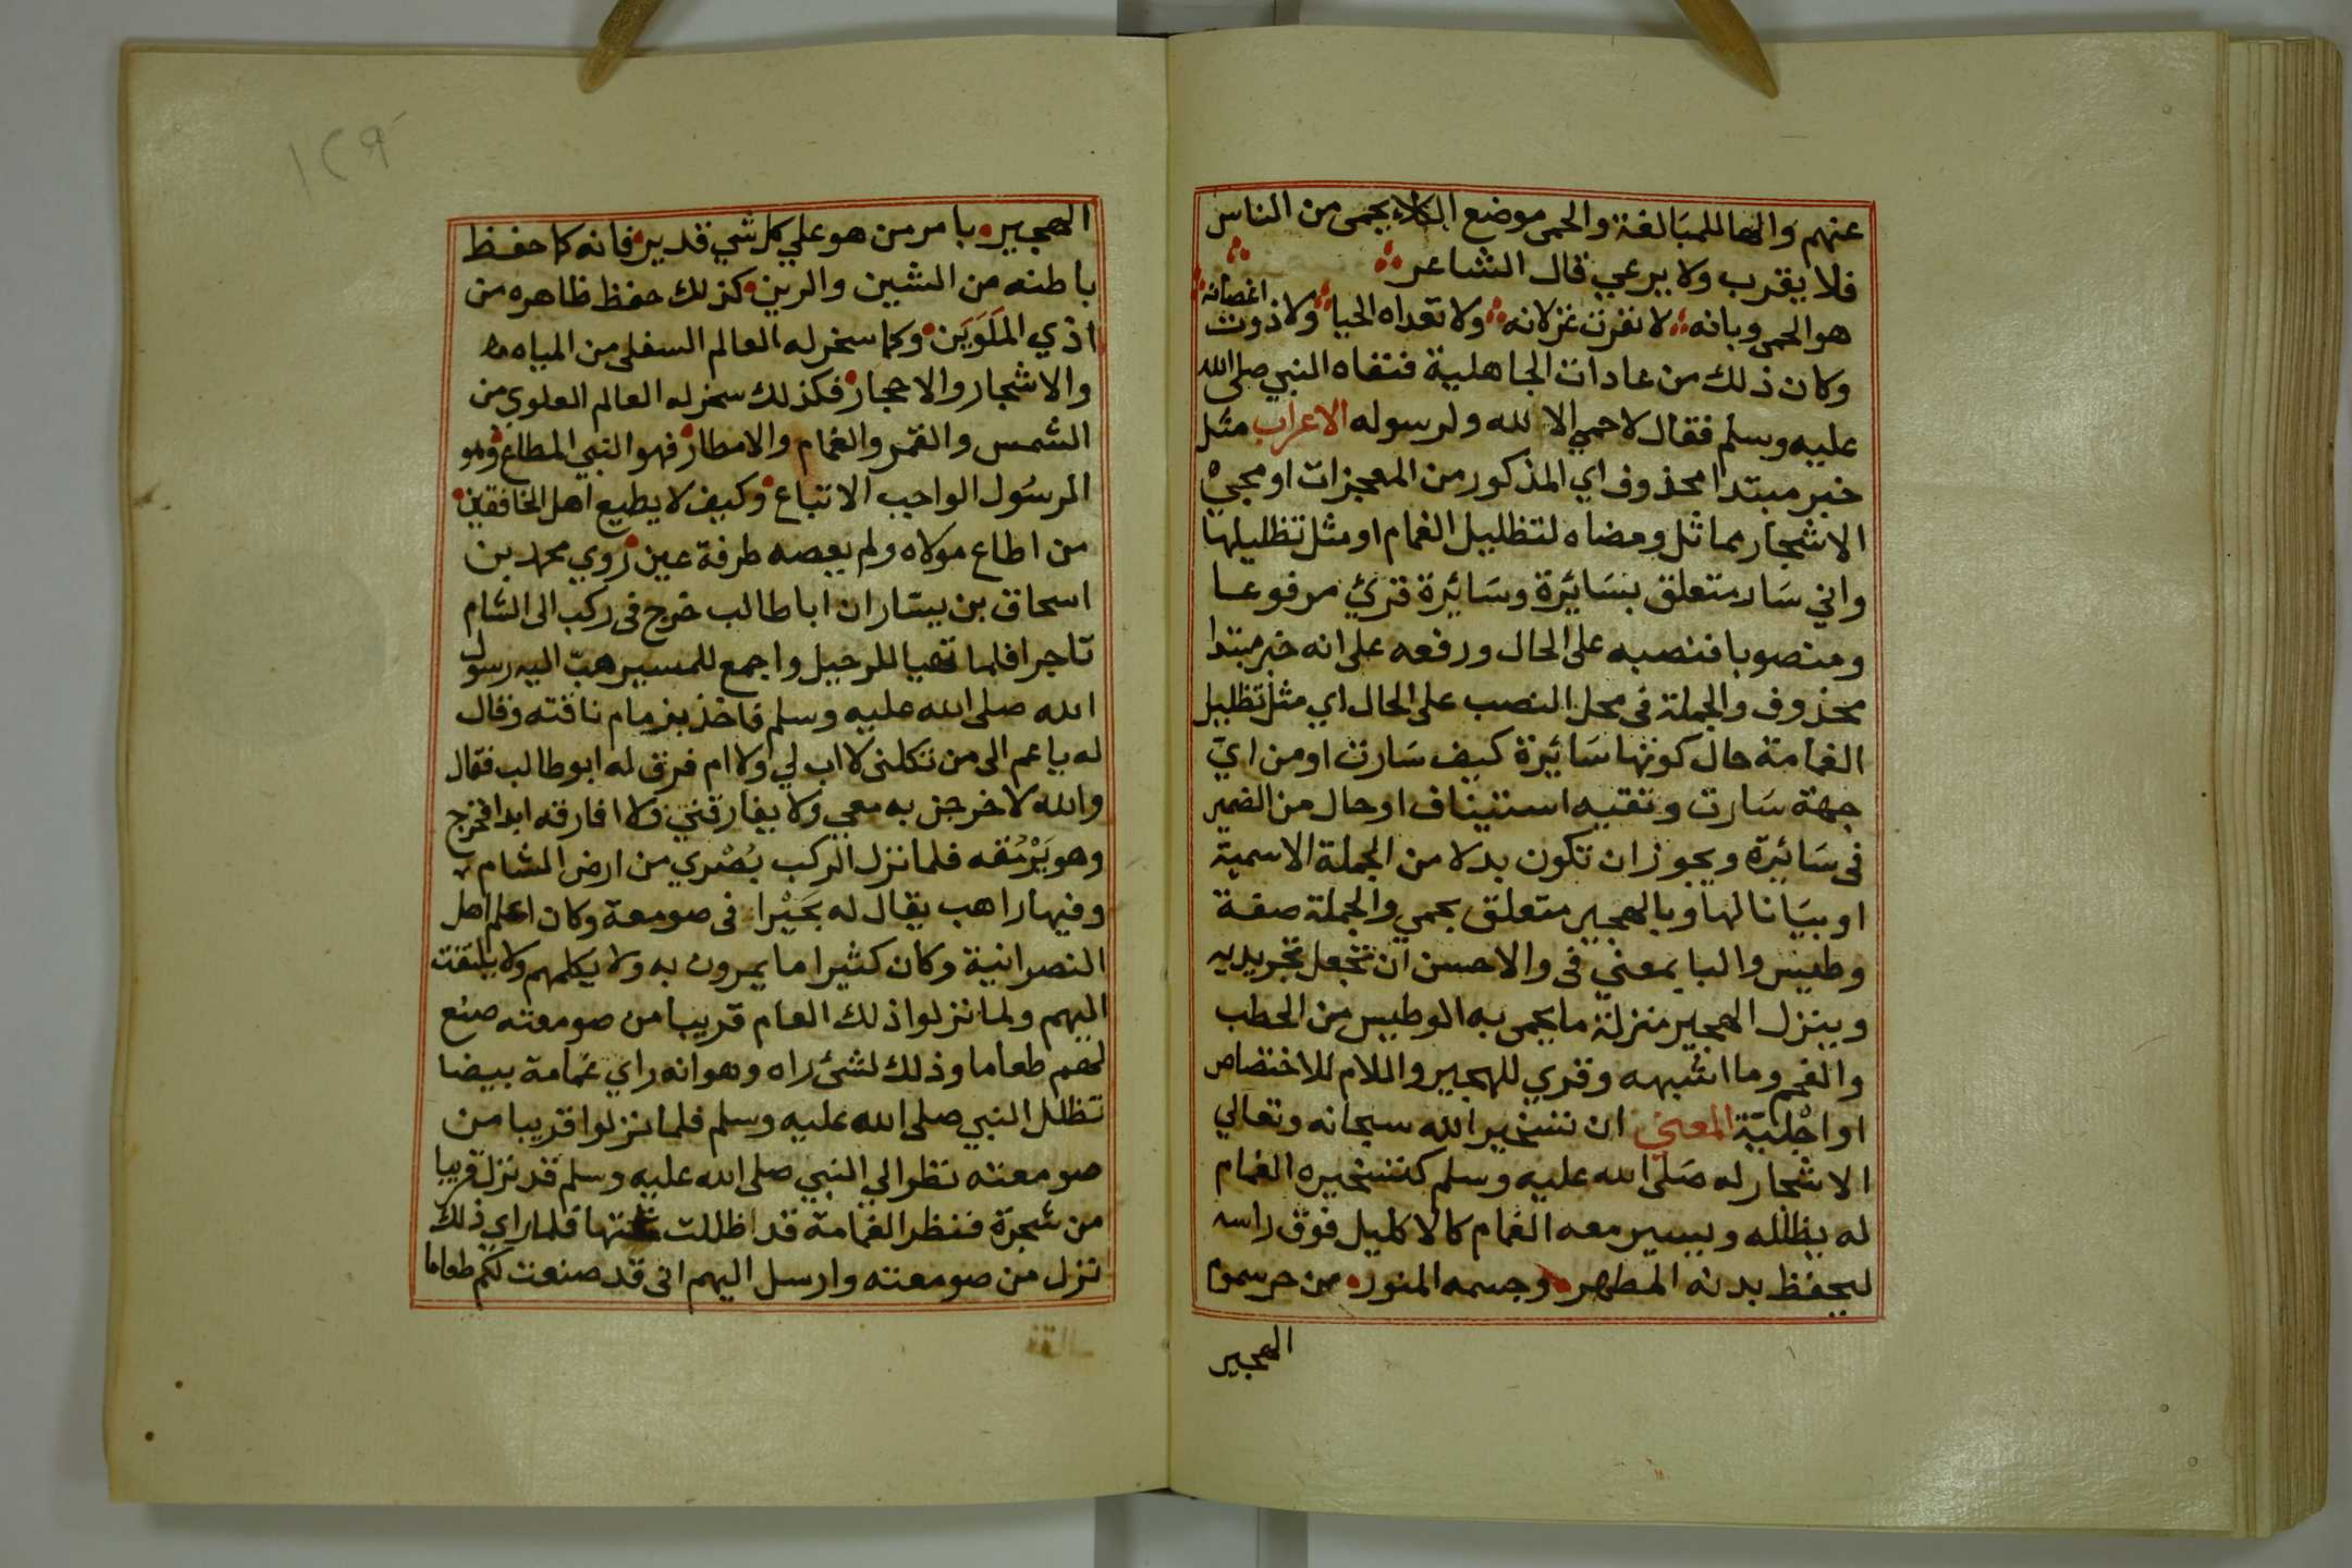 عنهم والهاللمبالغة والحمى موضع الكلاء يحمى من الناس
فلا يقرب ولا يرعي قال الشاعر
هو الحمى وبانه لا نفرت غزلانه ولا تعداه الحيا ولا ذوت اغصانه
وكان ذلك من عادات الجاهلية فنفاه النبي صلى الله
عليه وسلم فقال لاحمي الا لله ولرسوله الاعراب مثل
خبر مبتدا محذوف اي المذكور من المعجزات او مجيء
الاشجار مماثل ومضاه لتظليل الغمام او مثل تظليلها
واني سار متعلق بسائرة وسائرة قرئ مرفوعا
ومنصوبا فنصبه على الحال ورفعه على انه خبر مبتدا
محذوف والجملة فى محل النصب على الحال اي مثل تظليل
الغمامة حال كونها سائرة كيف سارت او من اي
جهة سارت وتقيه استيناف او حال من الضمير
فى سائرة ويجوز ان تكون بدلا من الجملة الاسمية
او بيانا لها وبالهجير متعلق بحمي والجملة صفة
وطيس والبا بمعني فى والاحسن ان تجعل تجريديه
وينزل الهجير منزلة ما يحمى به الوطيس من الحطب
والفحم وما اشبهه وقري للهجير واللام للاختصاص
او اجلية المعني ان تسخير الله سبحانه وتعالي
الاشجار له صلى الله عليه وسلم كتسخيره الغمام
له يظلله ويسير معه الغمام كالاكليل فوق راسه
ليحفظ بدنه المطهر وجسمه المنور من حر سموم
الهجير
١٢٩
الهجير بامر من هو علي كل شي قدير فانه كما حفظ
باطنه من الشين والرين كذلك حفظ ظاهره من
اذي الملوين وكما سخر له العالم السفلى من المياه
والاشجار والاحجار فكذلك سخر له العالم العلوي من
الشمس والقمر والغمام والامطار فهو النبي المطاع وهو
الرسول الواجب الاتباع وكيف لا يطيع اهل الخافقين
من اطاع مولاه ولم يعصه طرفة عين روي محمد بن
اسحاق بن يسار ان ابا طالب خرج فى ركب الى الشام
تاجرا فلما تهيا للرحيل واجمع للمسير هب اليه رسول
الله صلى الله عليه وسلم فاخذ بزمام ناقته وقال
له يا عم الى من تكلنى لا اب لي ولا ام فرق له ابو طالب فقال
والله لاخرجن به معي ولا يفارقني ولا افارقه ابدا فخرج
وهو يرمقه فلما نزل الركب بصري من ارض الشام
وفيها راهب يقال له بحيرا فى صومعة وكان اعلم اهل
النصرانية وكان كثيرا ما يمرون به ولا يكلمهم ولا يلتفت
اليهم ولما نزلوا ذلك العام قريبا من صومعته صنع
لهم طعاما وذلك لشئ راه وهو انه راي غمامة بيضا
تظلل النبي صلى الله عليه وسلم فلما نزلوا قريبا من
صومعته نظر الي النبي صلى الله عليه وسلم قد نزل قريبا
من شجرة فنظر الغمامة قد اظللت تحتها فلما راي ذلك
نزل من صومعته وارسل اليهم انى قد صنعت لكم طعاما